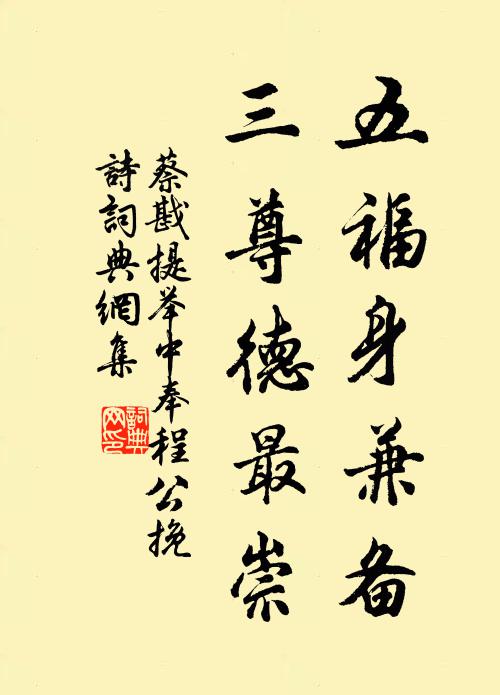 五福身兼备
三尊德最崇
蔡戡提举中奉程公挽
詩詞典網集
詞典网印